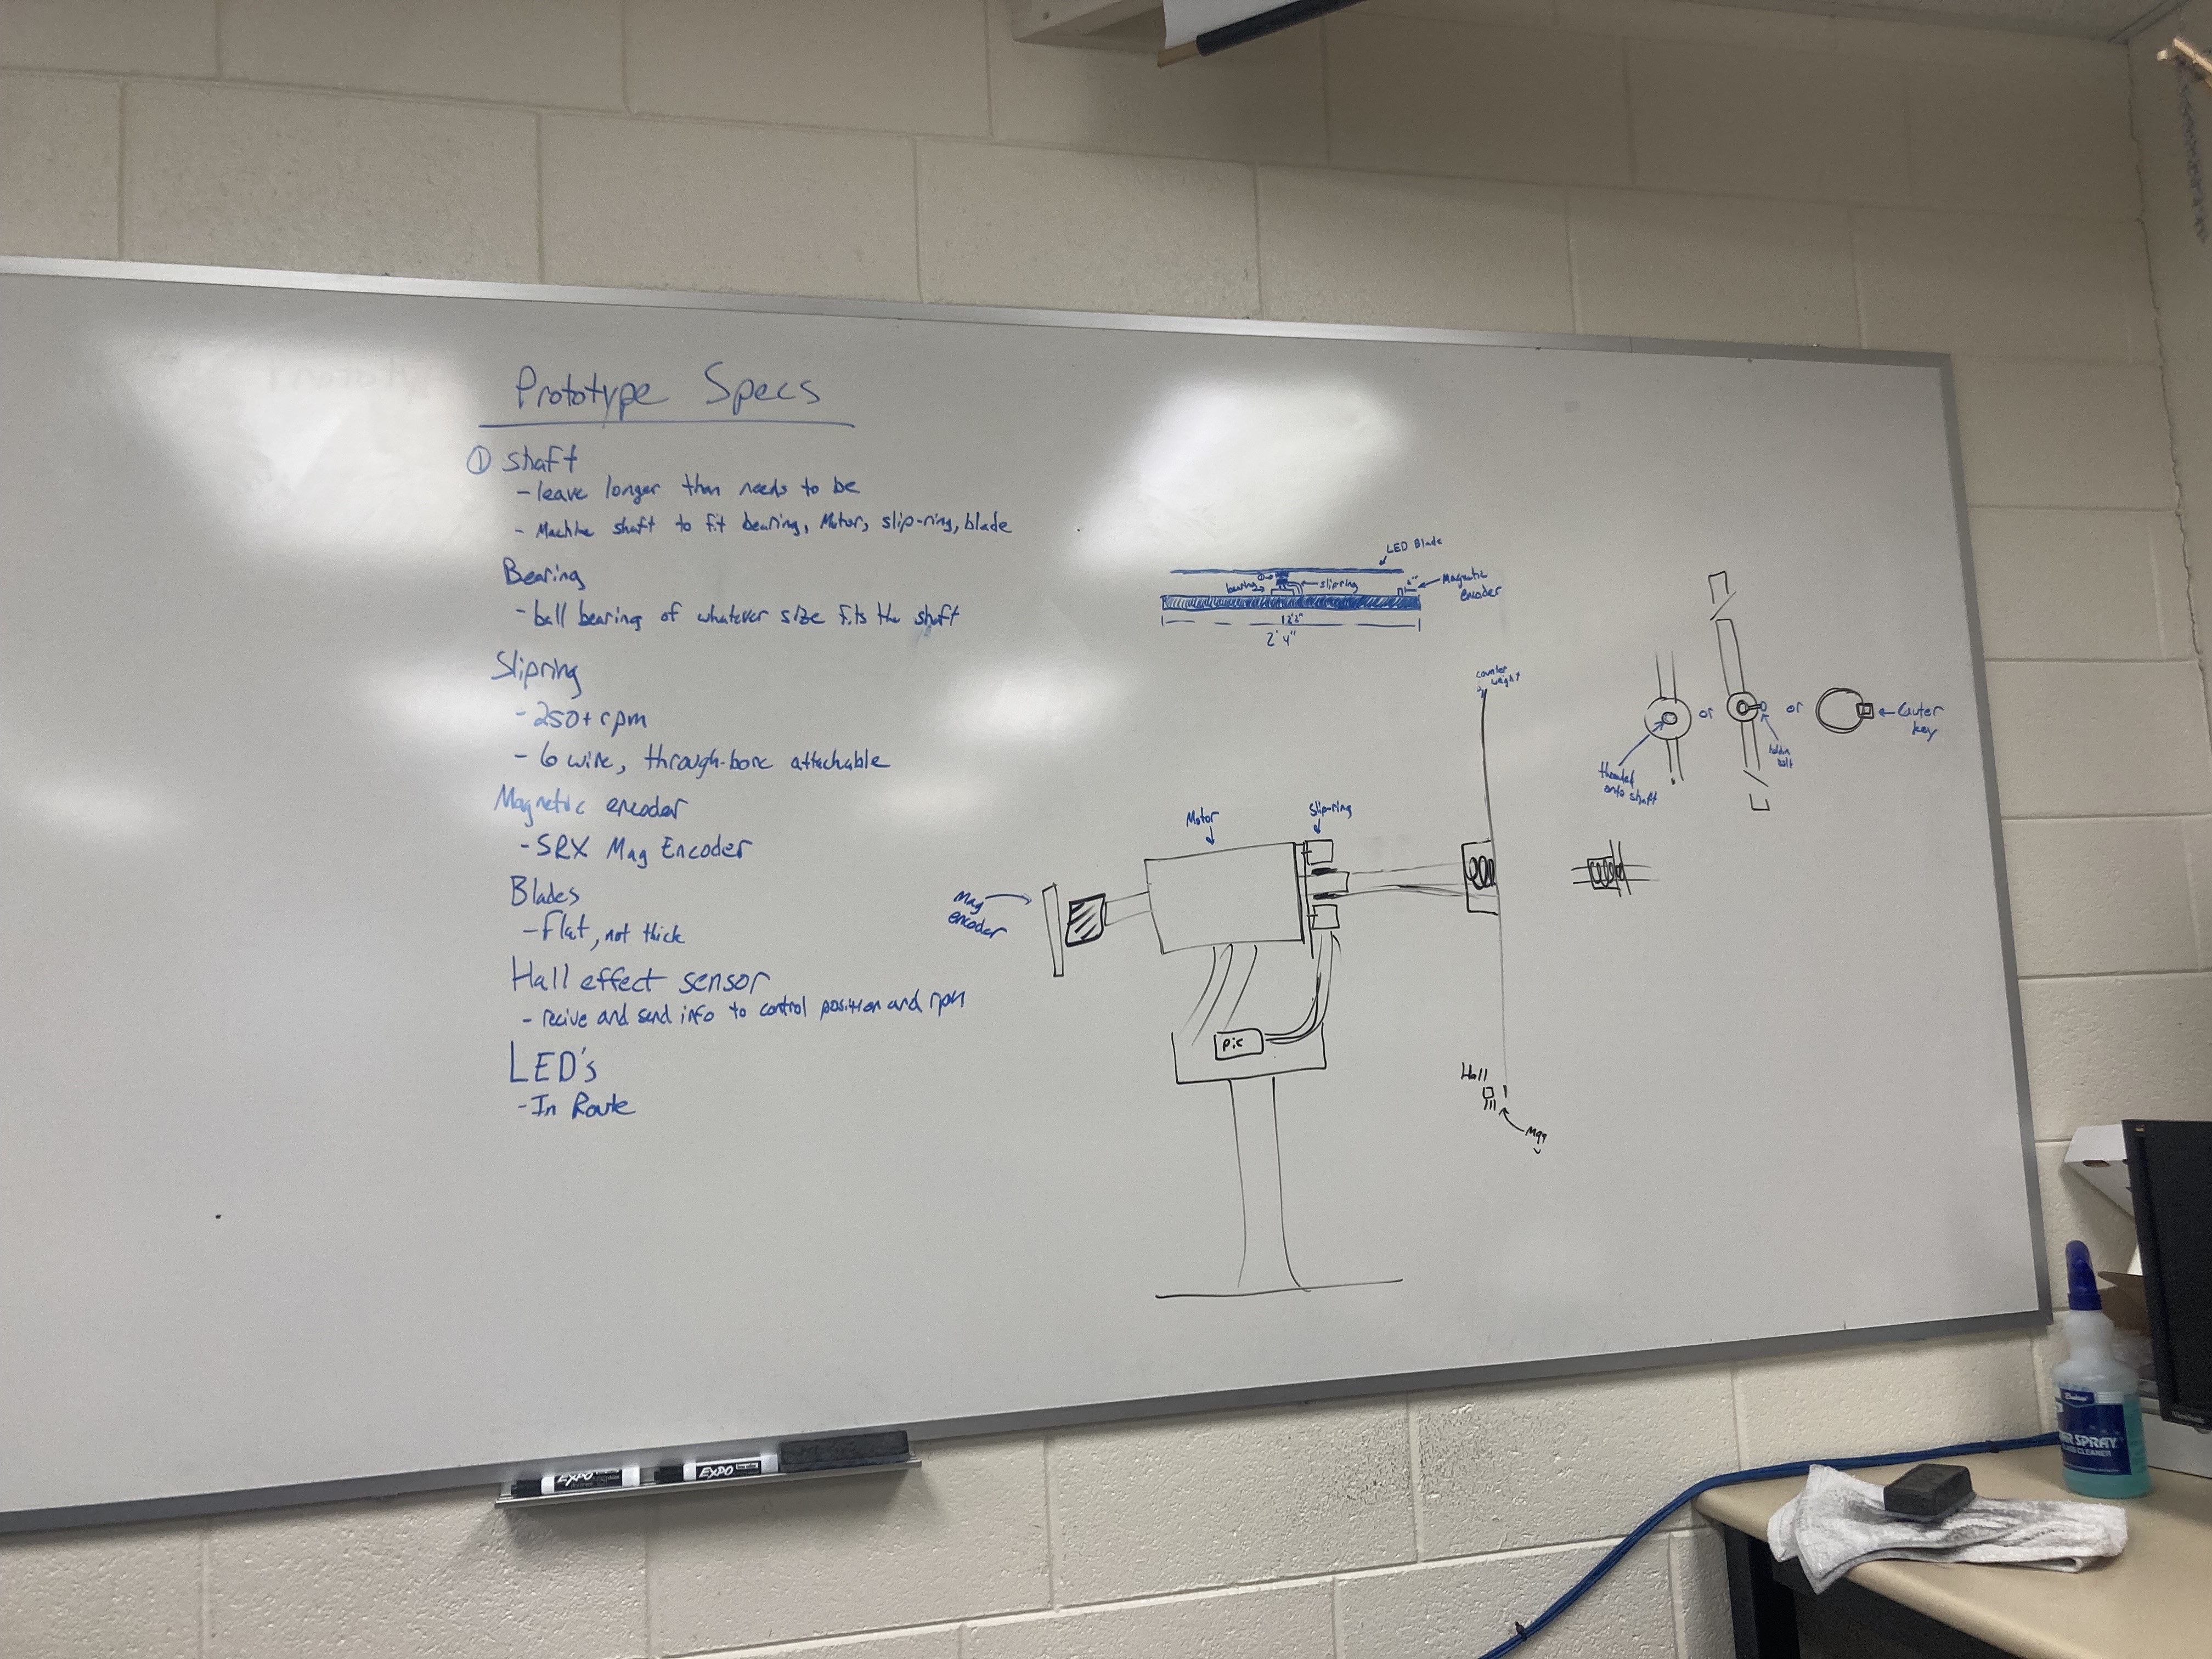 Prototype Specs
① shaft
- leave longer than needs to be
- Machine shaft to fit bearing, Motor, slip-ring, blade
Bearing
- ball bearing of whatever size fits the shaft
Slipring
- 250+ rpm
- 6 wire, through-bore attachable
Magnetic encoder
- SRX Mag Encoder
Blades
- Flat, not thick
Hall effect sensor
- recive and send info to control position and rpm
LED's
- In Route
LED Blade
①
bearing
slipring
Magnetic
encoder
2' 4"
counter
weight
Motor
Slip-ring
Mag
encoder
pic
Hall
Mag
threaded
onto shaft
or
bolt
or
key
EXPO
EXPO
SPRAY
CLEANER